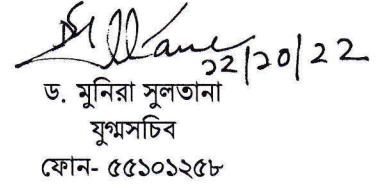 ১২/১০/২২
ড. মুনিরা সুলতানা
যুগ্মসচিব
ফোন- ৫৫১০১২৫৮